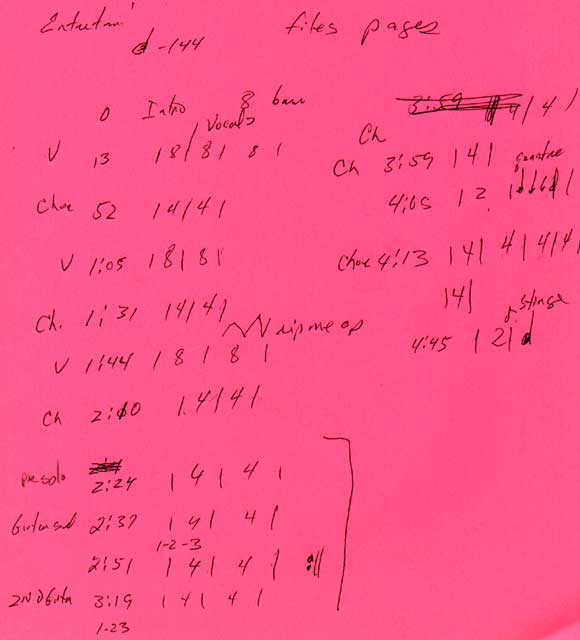 ♩ -144
files pages
0 Intro 8 bars
Vocals
V 13 | 8 | 8 | 8 |
Choe 52 | 4 | 4 |
V 1:05 | 8 | 8 |
Ch. 1:31 | 4 | 4 |
rip me op
V 1:44 | 8 | 8 |
Ch 2:10 | 4 | 4 |
presolo
2:24 | 4 | 4 |
2:37 | 4 | 4 |
1-2-3
2:51 | 4 | 4 | :||
2nd 3:19 | 4 | 4 |
1-23
3:59 | 4 | 4 |
Ch
Ch 3:59 | 4 |
4:05 | 2 |
Choe 4:13 | 4 | 4 | 4 | 4
| 4 |
stinger
4:45 | 2 |